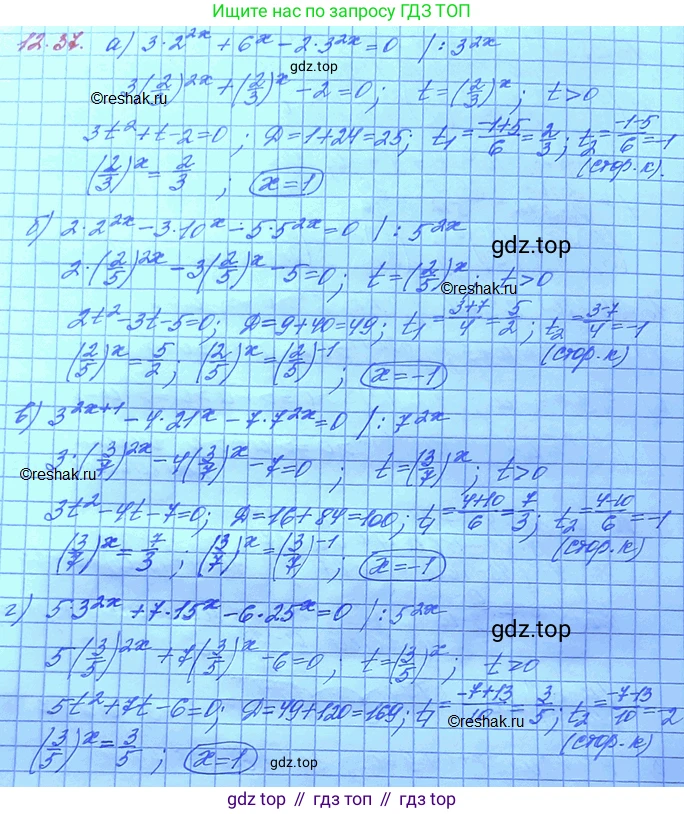 Ищите нас по запросу ГДЗ ТОП
12.37. а) 3·2^{2x} + 6^x - 2·3^{2x} = 0 /:3^{2x}
gdz.top
3(2/3)^{2x} + (2/3)^x - 2 = 0; t = (2/3)^x; t > 0
©reshak.ru
3t² + t - 2 = 0; D = 1 + 24 = 25; t₁ = (-1+5)/6 = 2/3; t₂ = (-1-5)/6 = -1
(стор. к).
(2/3)^x = 2/3; x = 1
б) 2·2^{2x} - 3·10^x - 5·5^{2x} = 0 /:5^{2x}
gdz.top
2·(2/5)^{2x} - 3(2/5)^x - 5 = 0; t = (2/5)^x; t > 0
©reshak.ru
2t² - 3t - 5 = 0; D = 9 + 40 = 49; t₁ = (3+7)/4 = 5/2; t₂ = (3-7)/4 = -1
(стор. к)
(2/5)^x = 5/2; (2/5)^x = (2/5)^{-1}; x = -1
в) 3^{2x+1} - 4·21^x - 7·7^{2x} = 0 /:7^{2x}
3·(3/7)^{2x} - 4(3/7)^x - 7 = 0; t = (3/7)^x; t > 0
©reshak.ru
3t² - 4t - 7 = 0; D = 16 + 84 = 100; t₁ = (4+10)/6 = 7/3; t₂ = (4-10)/6 = -1
(стор. к)
(3/7)^x = 7/3; (3/7)^x = (3/7)^{-1}; x = -1
г) 5·3^{2x} + 7·15^x - 6·25^x = 0 /:5^{2x}
gdz.top
5(3/5)^{2x} + 7(3/5)^x - 6 = 0; t = (3/5)^x; t > 0
5t² + 7t - 6 = 0; D = 49 + 120 = 169; t₁ = (-7+13)/10 = 3/5; t₂ = (-7-13)/10 = -2
©reshak.ru
(стор. к)
(3/5)^x = 3/5; x = 1
gdz.top
gdz top // гдз топ // gdz.top